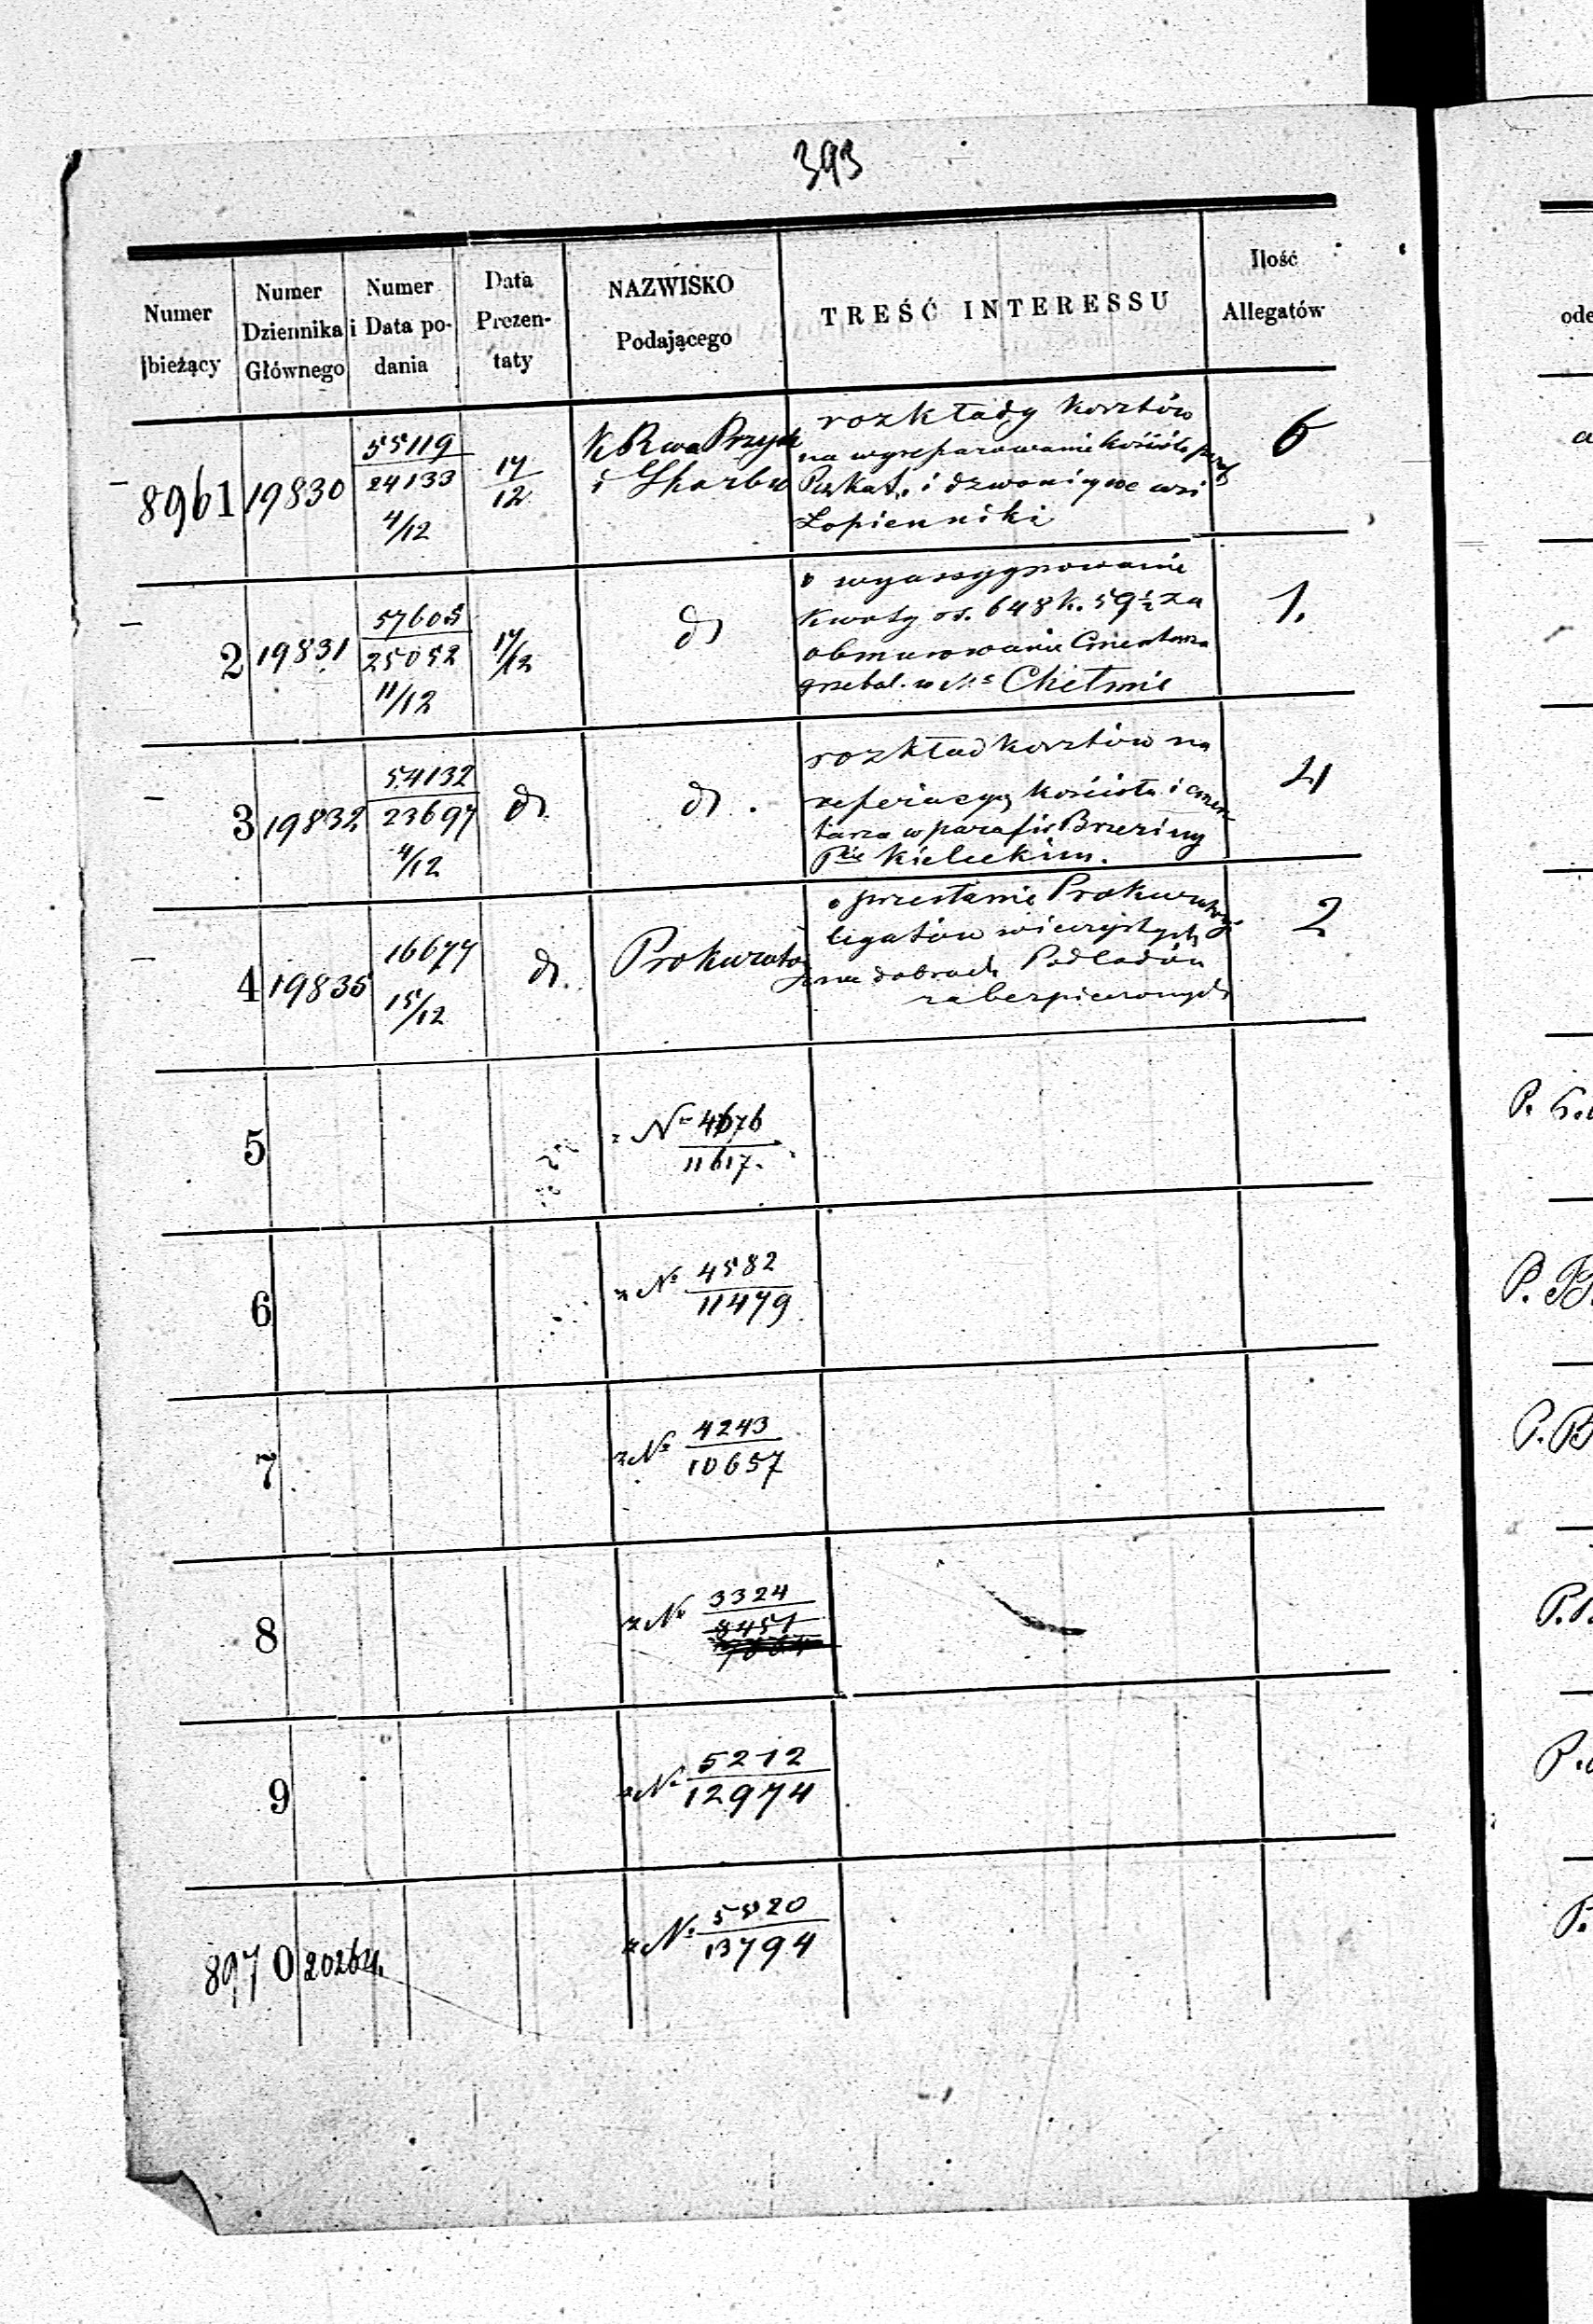 393
Numer bieżący
Numer Dziennika Głównego
Numer i Data po-dania
Data Prezen-taty
NAZWISKO Podającego
TREŚĆ INTERESSU
Ilość Allegatów
8961 19830 55119/24133 4/12 17/12 i Skarbu
rozkłady kosztów
na wyreparowanie
i dzwonicy we wsi
Łopienniki
6
2 19831 25052 11/12 17/12 do
o wyassygnowanie
kwoty rs. 648 k. 59½ za
obmurowanie Cmentarza
grzebal. w Mie Chełmie
1.
3 19832 54132/23697 4/12 do do.
rozkład kosztów na
reperacyą kościoła i cmen-
tarza w parafii Brzeziny
Pcie Kieleckim.
4
4 19835 16677 15/12 do. Prokurator
o przesłanie Prokuratoryi
legatów wieczystych
na dobrach
zabezpieczonych
2
5 z No 4676/11617.
6 z No 4582/11479
7 z No 4243/10657
8 z No 3324/8451
9 z No 5212/12974
8970 20264. z No 13794
ode
P.
P. B
P. B
P.
P.
P.